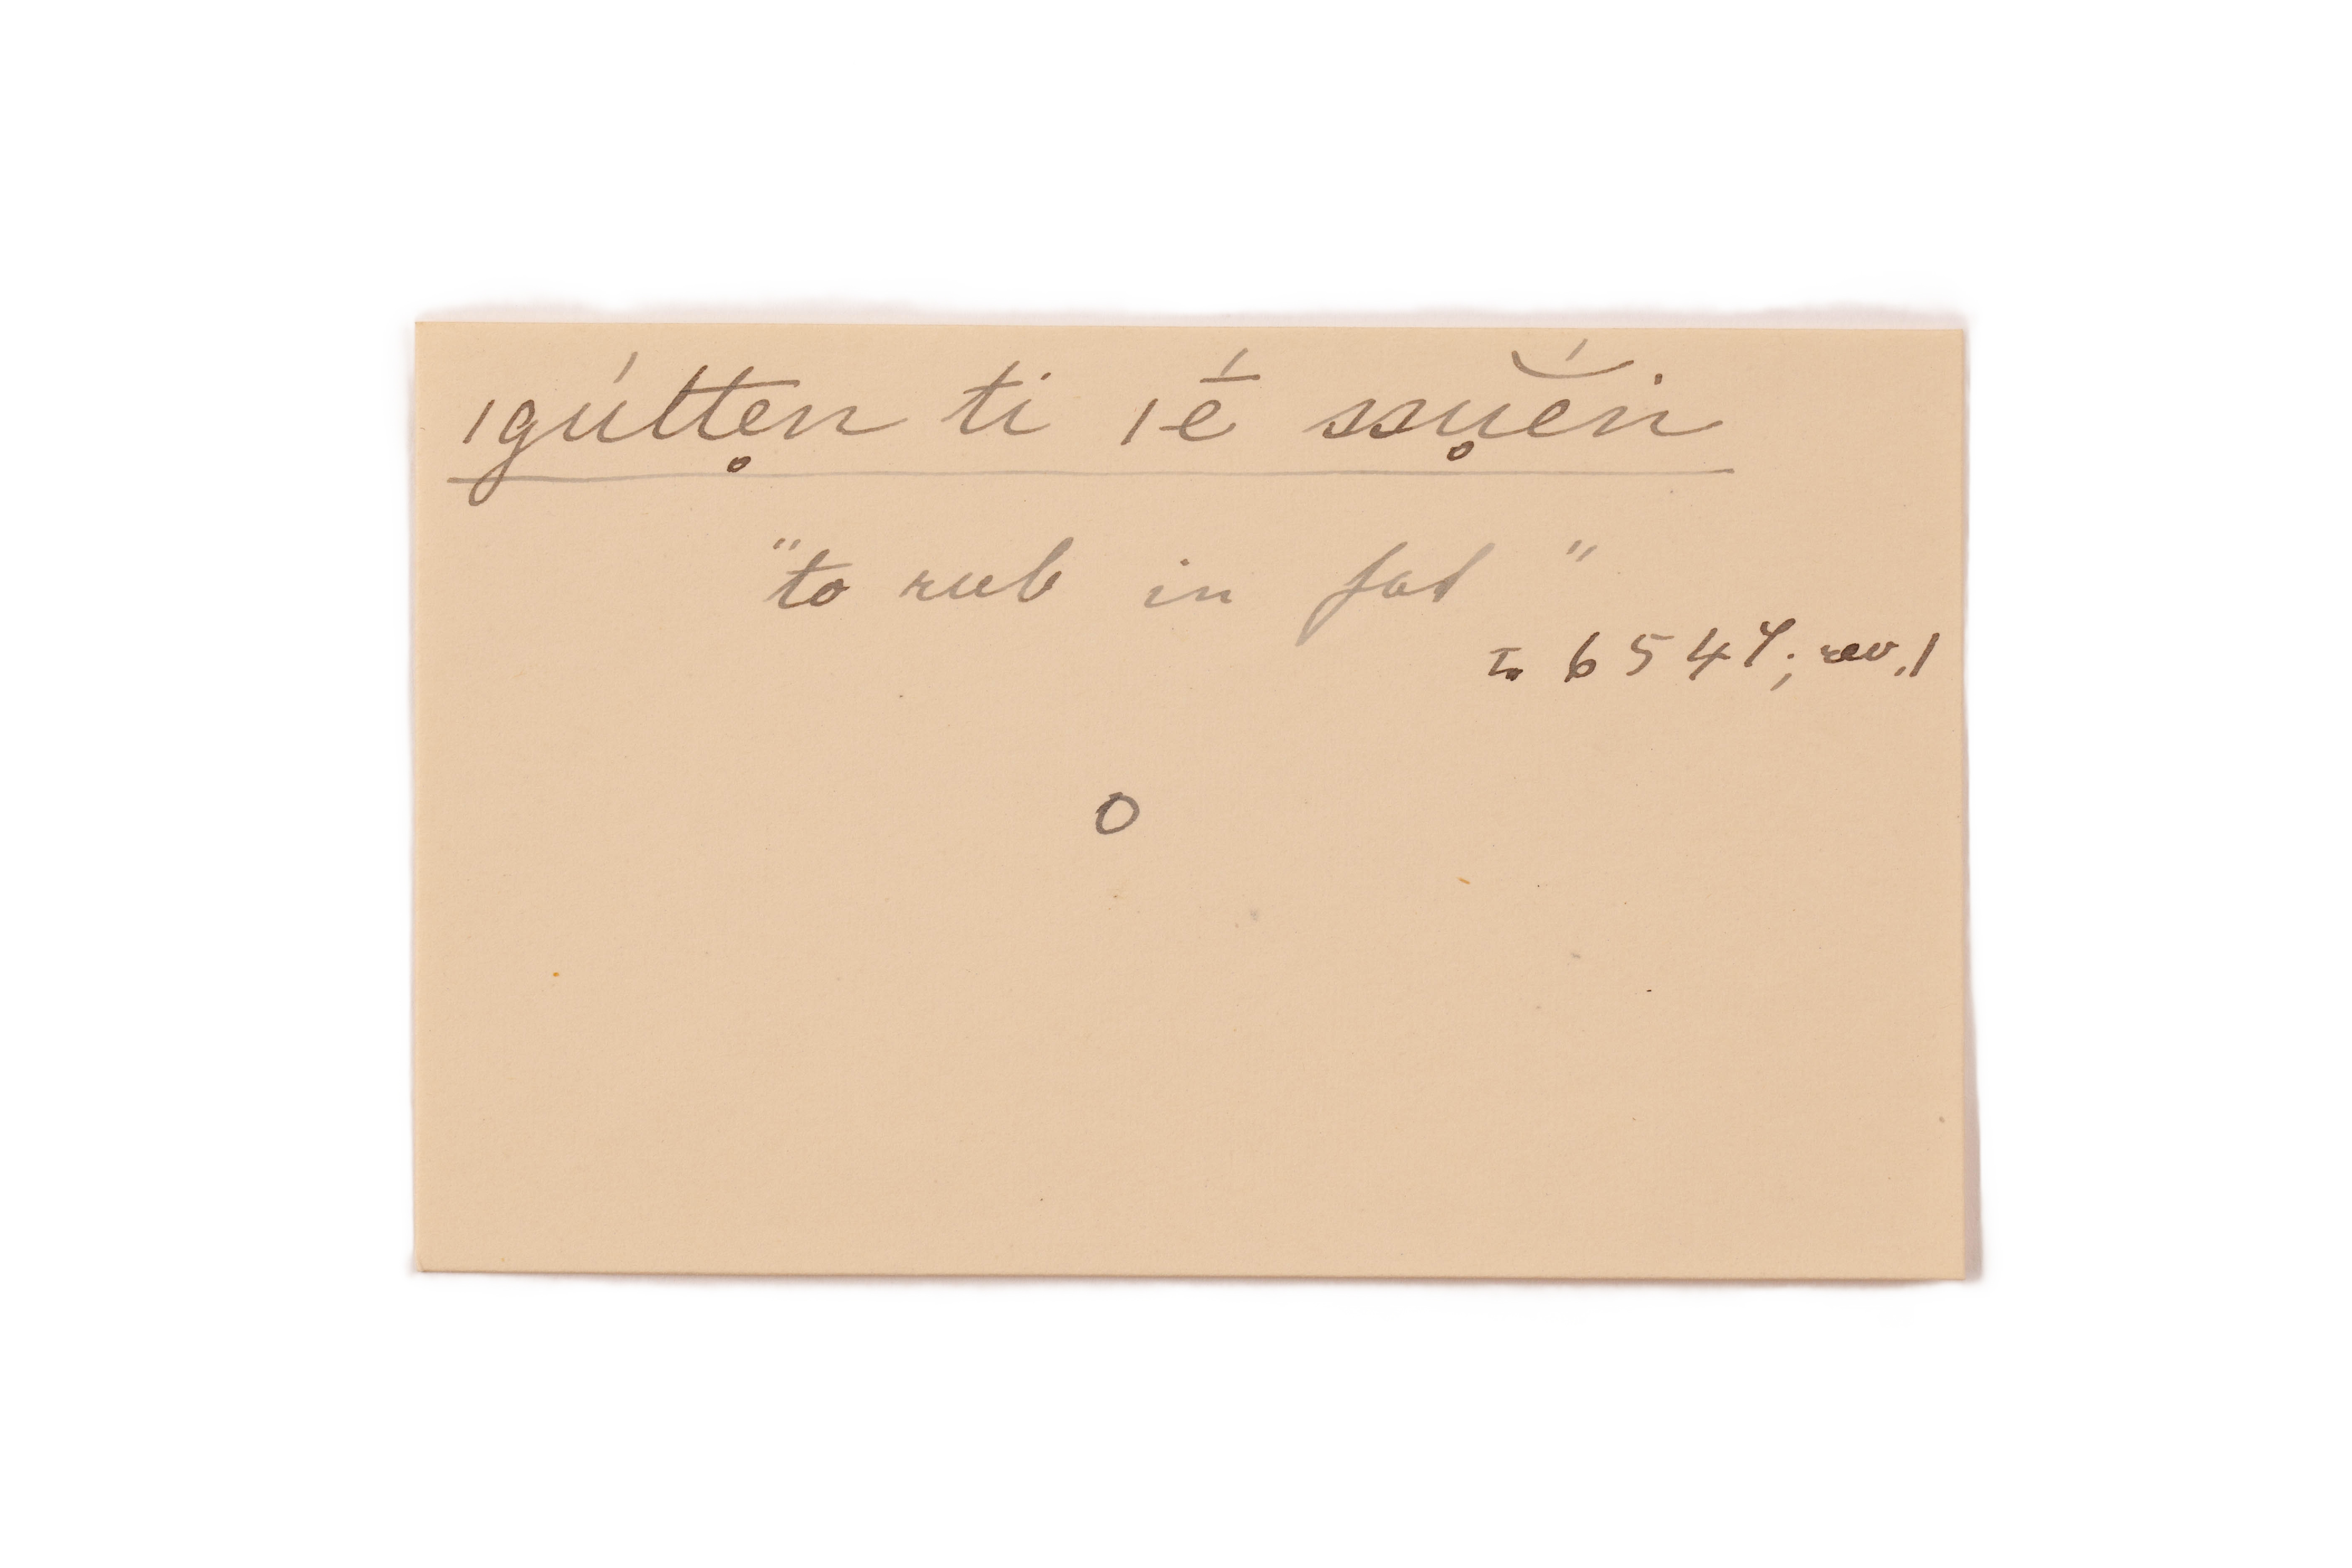 ǀgúttẹn ti ǀḗ ssụ̆én
"to rub in fat"
L 6547; rev. 1
O